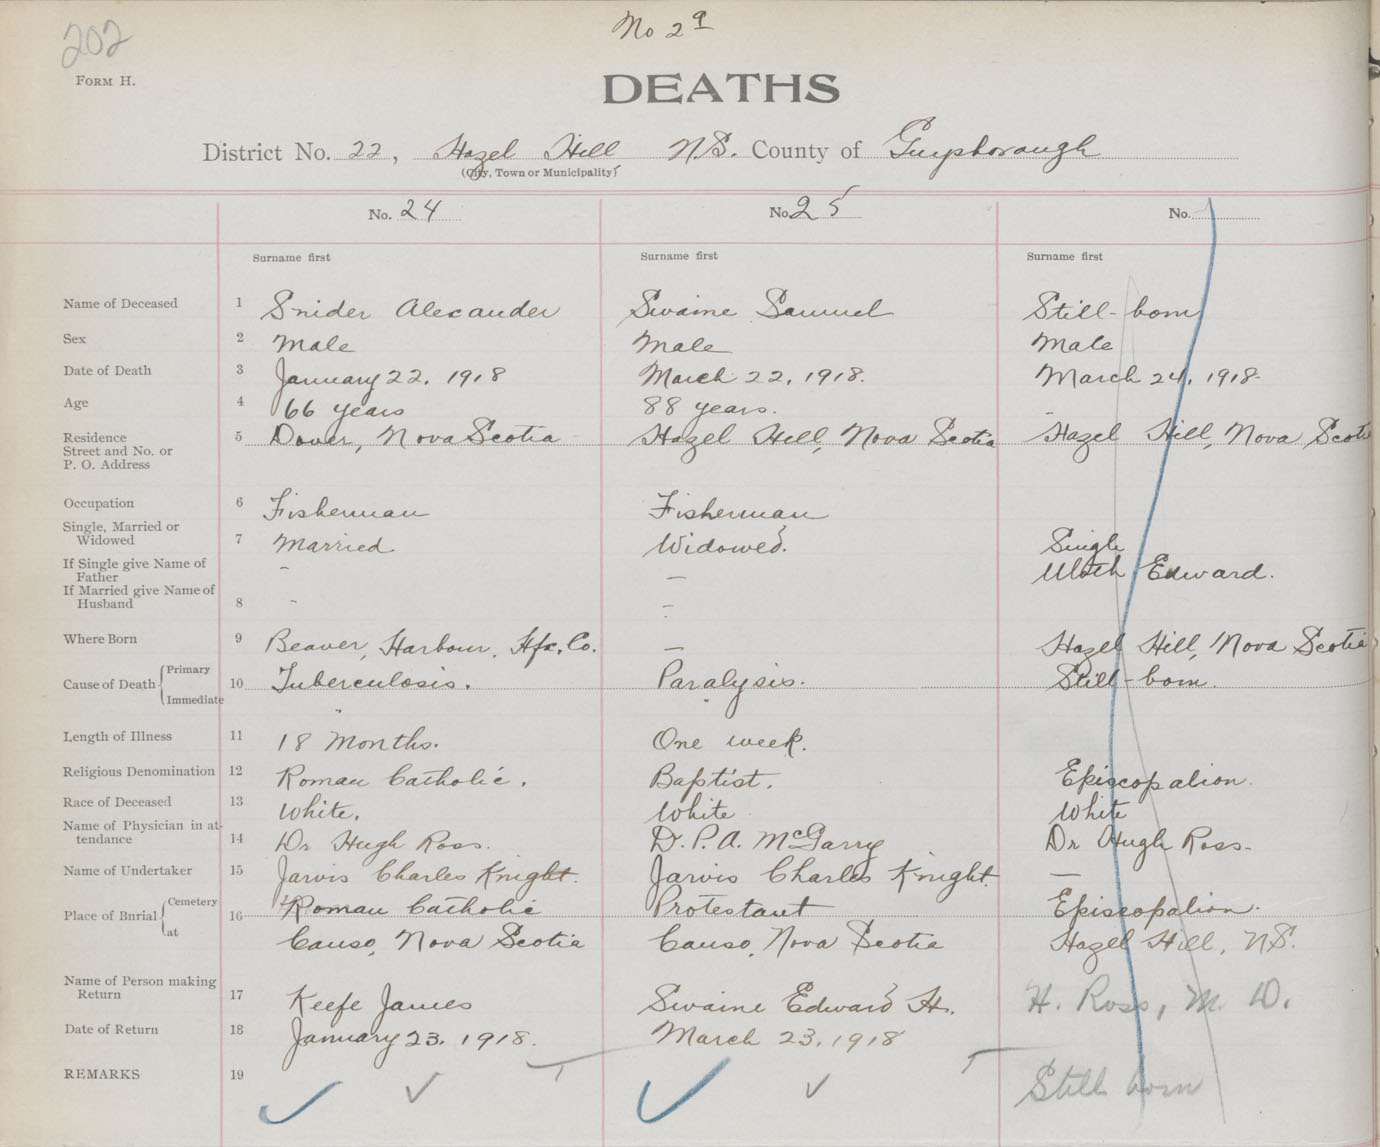 202
No 2 9
Form H.
DEATHS
District No. 22, Hazel Hill N.S. County of Guysborough
(City, Town or Municipality)
No. 24 No. 25 No.
Surname first Surname first Surname first
Name of Deceased 1 Snider Alexander Swaine Samuel Still-born
Sex 2 Male Male Male
Date of Death 3 January 22, 1918 March 22, 1918. March 24, 1918.
Age 4 66 years 88 years. -
Residence
Street and No. or
P. O. Address
5 Dover, Nova Scotia Hazel Hill, Nova Scotia Hazel Hill, Nova Scotia
Occupation 6 Fisherman Fisherman
Single, Married or
Widowed 7 Married Widowed. Single
If Single give Name of
Father - - Edward.
If Married give Name of
Husband 8 - -
Where Born 9 Beaver, Harbour, Hfx, Co. - Hazel Hill, Nova Scotia
Cause of Death Primary
Immediate
10 Tuberculosis. Paralysis. Still-born.
Length of Illness 11 18 Months. One week.
Religious Denomination 12 Roman Catholic. Baptist. Episcopalion.
Race of Deceased 13 White. White White
Name of Physician in at-
tendance 14 Dr Hugh Ross. D. P. A. McGarry Dr Hugh Ross-
Name of Undertaker 15 Jarvis Charles Knight. Jarvis Charles Knight. -
Place of Burial Cemetery
at
16 Roman Catholic Protestant Episcopalion.
Canso, Nova Scotia Canso, Nova Scotia Hazel Hill, N.S.
Name of Person making
Return 17 Keefe James Swaine Edward H. H. Ross, M. D.
Date of Return 18 January 23, 1918. March 23, 1918
REMARKS 19 Still born